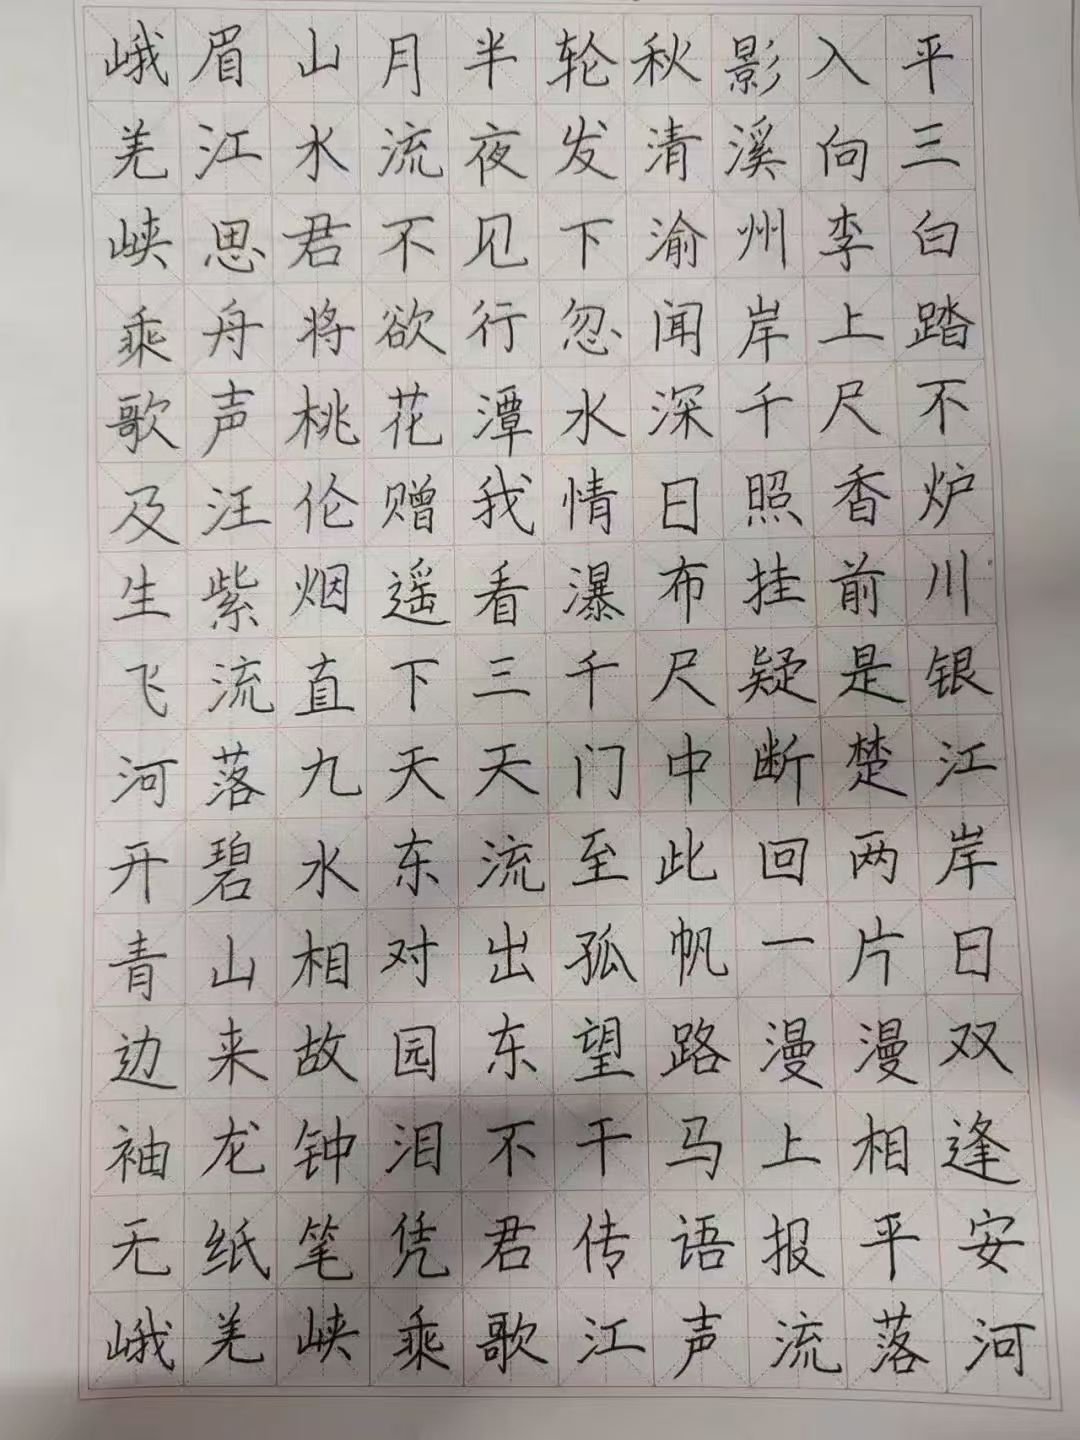 峨眉山月半轮秋影入平
羌江水流夜发清溪向三
峡思君不见下渝州李白
乘舟将欲行忽闻岸上踏
歌声桃花潭水深千尺不
及汪伦赠我情日照香炉
生紫烟遥看瀑布挂前川
飞流直下三千尺疑是银
河落九天天门中断楚江
开碧水东流至此回两岸
青山相对出孤帆一片日
边来故园东望路漫漫双
袖龙钟泪不干马上相逢
无纸笔凭君传语报平安
峨羌峡乘歌江声流落河